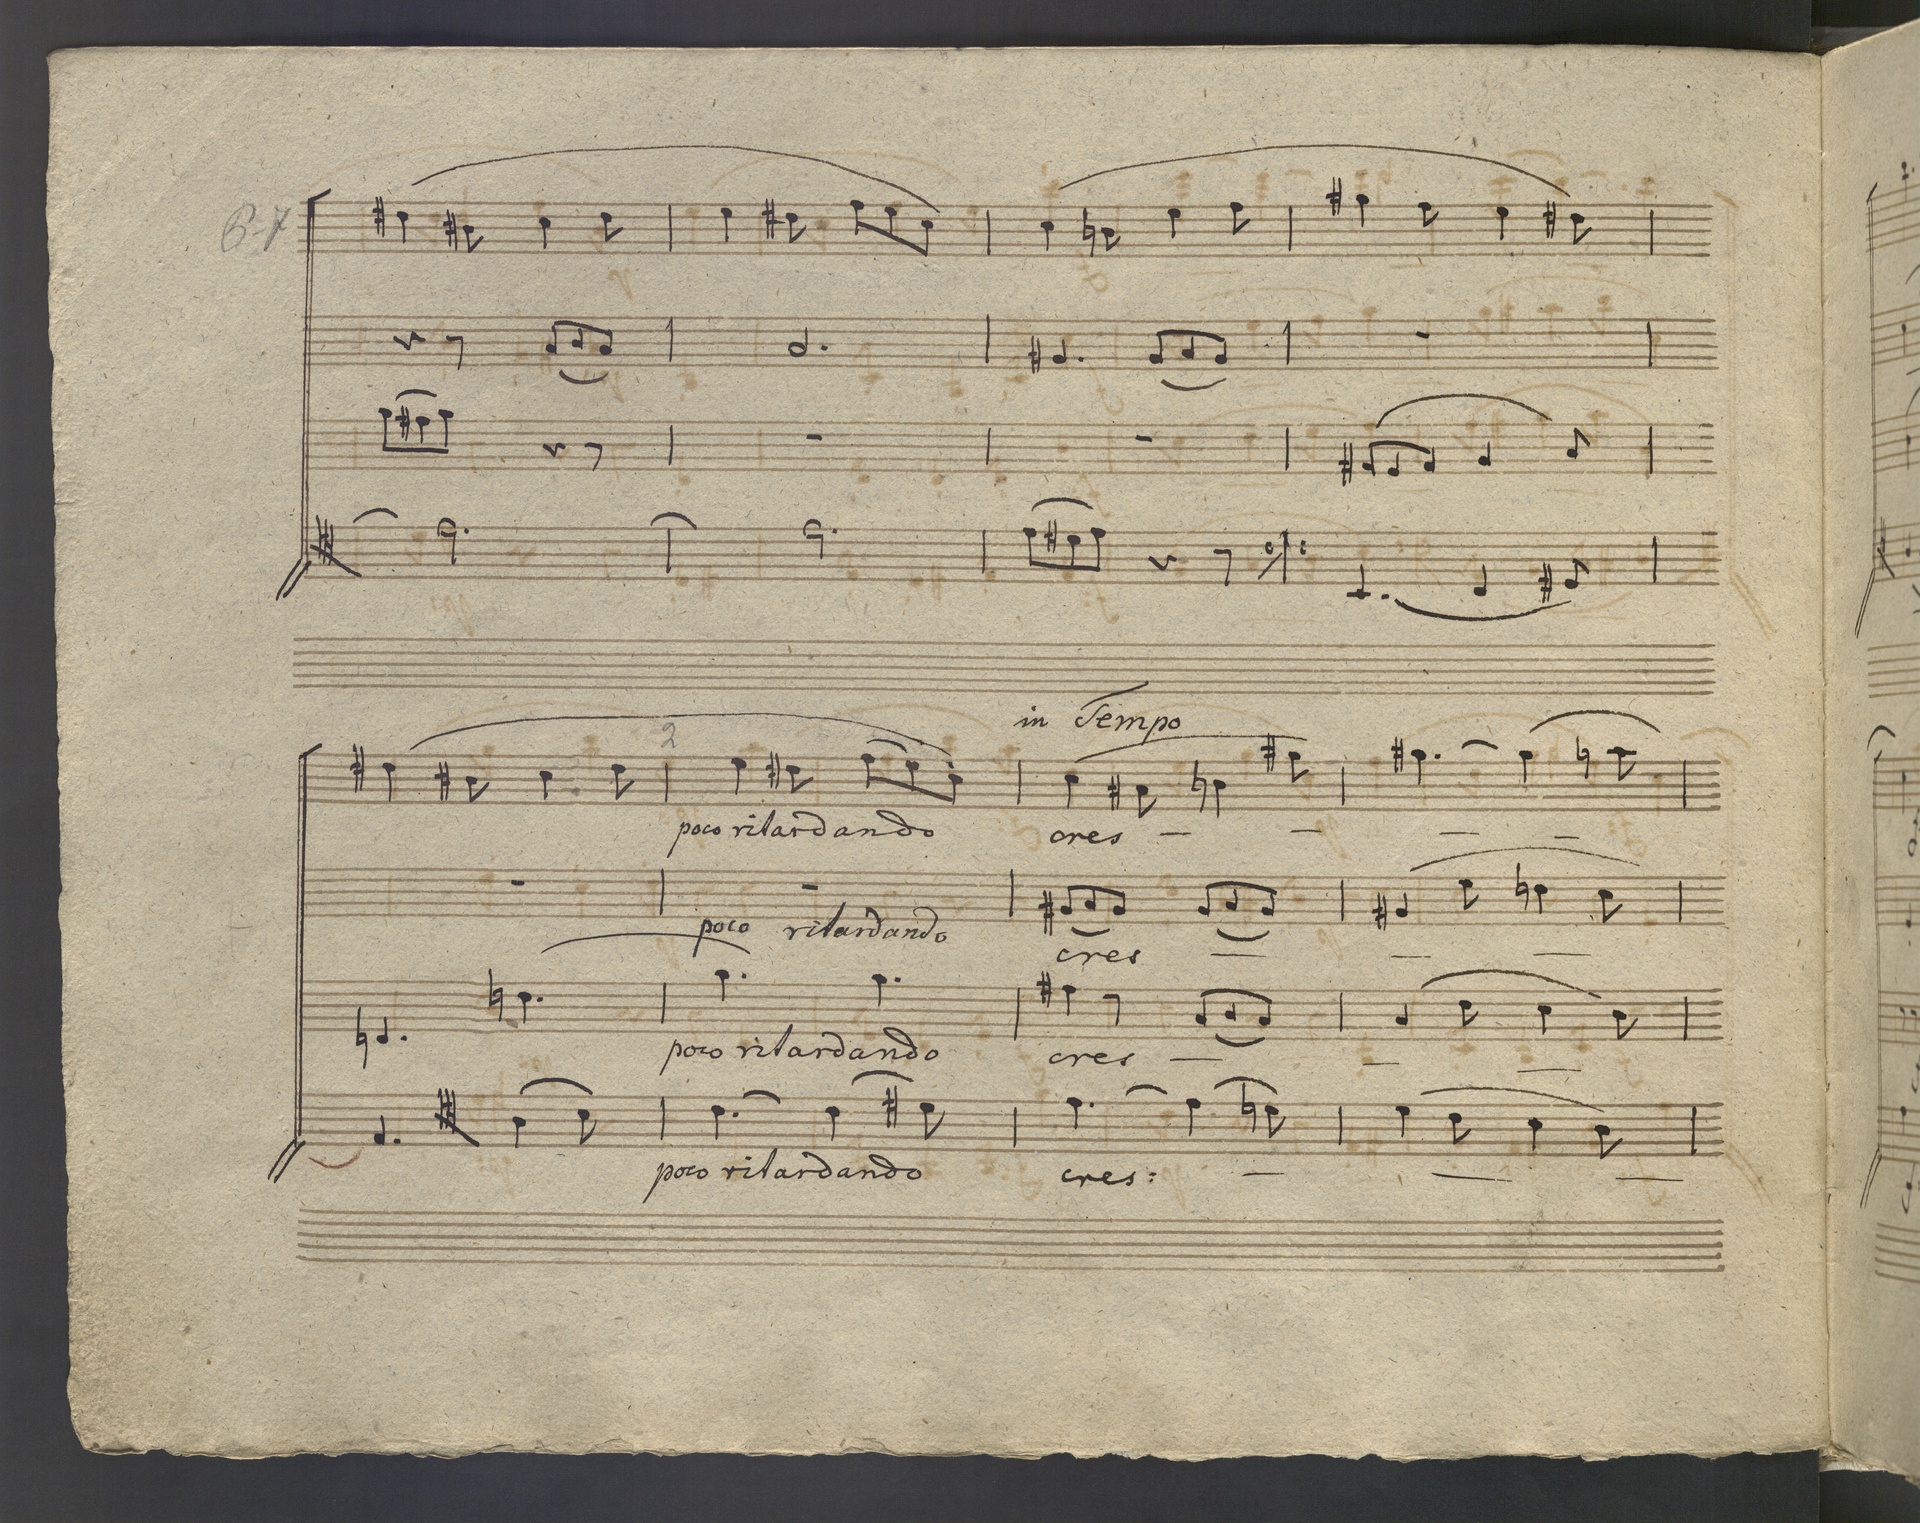 in Tempo
2
poco ritardando cres
poco ritardando
cres
poco ritardando cres
poco ritardando cres: